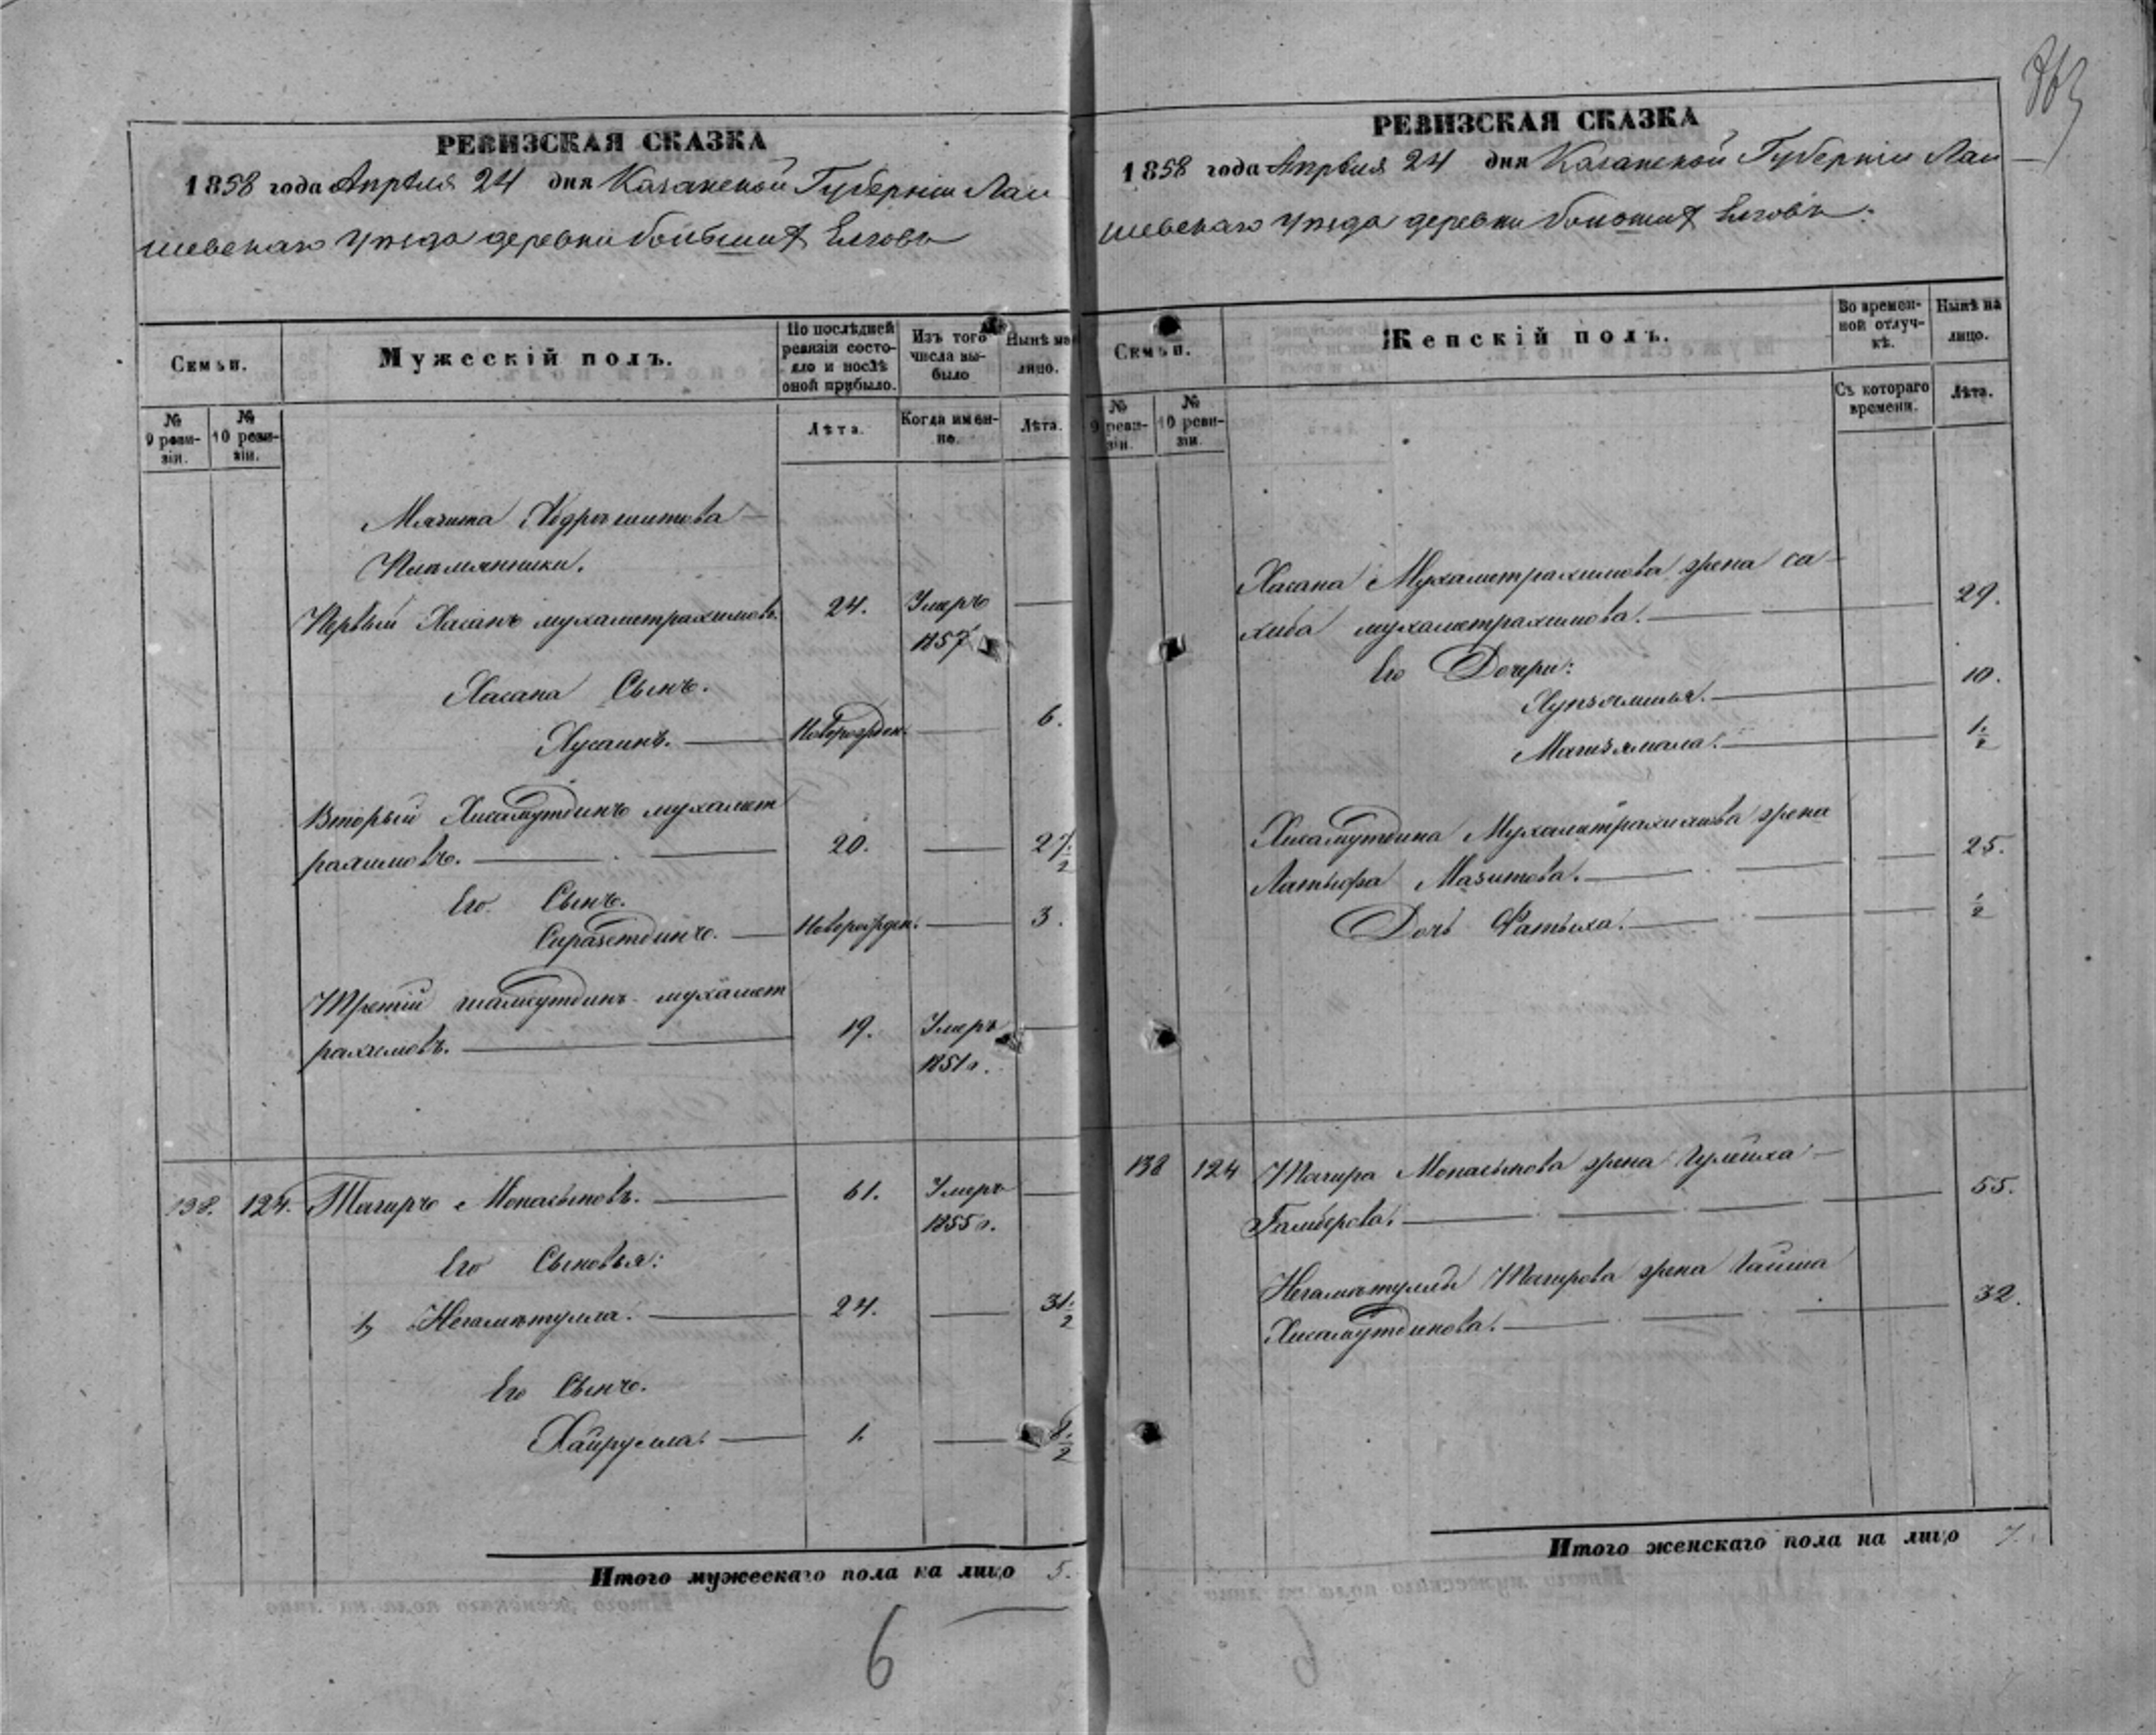 363
РЕВИЗСКАЯ СКАЗКА
1858 года Апрѣля 24 дня Казанской Губерніи Лаи
шевскаго Уѣзда деревни большихъ Елговъ
Семьи.
Мужескій полъ.
По послѣдней ревизіи состояло и послѣ оной прибыло.
Изъ того числа выбыло
Нынѣ на лицо.
№ 9 ревизіи.
№ 10 ревизіи.
Лѣта.
Когда именно.
Лѣта.
Мячита Абдрашитова
Племянники.
Первый Хасанъ мухаметрахимовъ. 24. Умеръ
1857
Хасана Сынъ.
Хусаинъ. Новорожден. 6.
Вторый Хисамутдинъ мухамет
рахимовъ. 20. 27 1/2
Его Сынъ.
Сиразетдинъ. Новорожден. 3.
Третій шамсутдинъ мухамет
рахимовъ. 19. Умеръ
1851 г.
138. 124. Тагиръ Монасыповъ. 61. Умеръ
1855 г.
Его Сыновья:
1, Негаметулла. 24. 31 1/2
Его Сынъ.
Хайрулла. 1. 8 1/2
Итого мужескаго пола на лицо 5.
6
РЕВИЗСКАЯ СКАЗКА
1858 года Апрѣля 24 дня Казанской Губерніи Лаи
шевскаго Уѣзда деревни большихъ Елговъ.
Семьи.
Женскій полъ.
Во временной отлучкѣ.
Нынѣ на лицо.
№ 9 ревизіи.
№ 10 ревизіи.
Съ котораго времени.
Лѣта.
Хасана Мухаметрахимова жена са
хиба мухаметрахимова. 29.
Его Дочери:
10.
1 1/2
Хисамутдина Мухаметрахимова жена
Латыфа Мазитова. 25.
Дочь Фатыха. 1/2
138 124 Тагира Монасыпова жена Гулейха
55.
Негаметуллы Тагирова жена Гайша
Хисамутдинова. 32.
Итого женскаго пола на лицо 7.